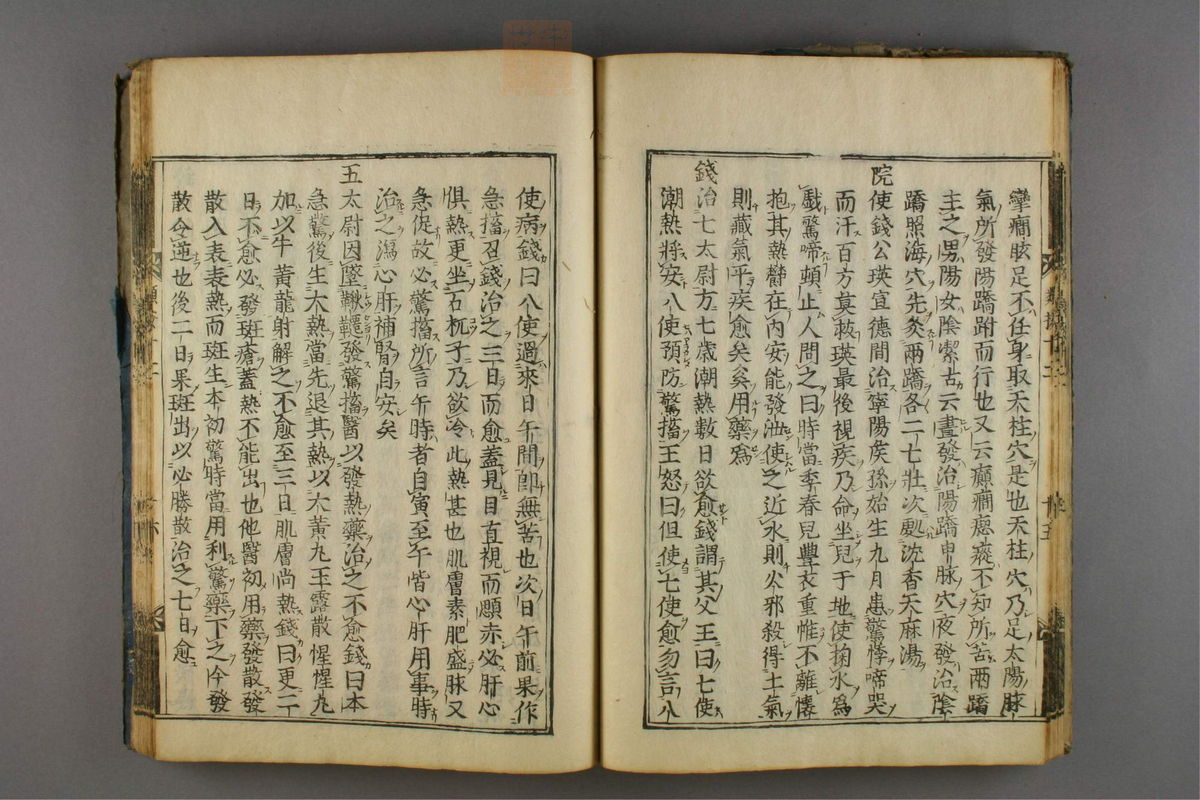 攣癎眩足不任身取天柱穴是也天柱穴乃足太陽脉
氣所發陽蹻跗而行也又云癲癎瘛瘲不知所苦兩蹻
主之男陽女陰潔古云晝發治陽蹻申脉穴夜發治陰
蹻照海穴先灸兩蹻各二七壯次處沈香天麻湯
院使錢公瑛宣德間治寧陽侯孫始生九月患驚悸啼哭
而汗百方莫救瑛最後視疾乃命坐兒于地使掬水爲
戲驚啼頓止人問之曰時當季春兒豐衣重帷不離懷
抱其熱欝在內安能發泄使之近水則火邪殺得土氣
則藏氣平疾愈矣奚用藥爲
錢治七太尉方七歲潮熱數日欲愈錢謂其父王曰七使
潮熱將安八使預防驚搐王怒曰但使七使愈勿言八
使病錢曰八使過來日午間卽無苦也次日午前果作
急搐召錢治之三日而愈蓋見目直視而顋赤必肝心
俱熱更坐石杌子乃欲冷此熱甚也肌膚素肥盛脉又
急促故必驚搐所言午時者自寅至午皆心肝用事時
治之瀉心肝補腎自安矣
五太尉因墜鞦韆發驚搐醫以發熱藥治之不愈錢曰本
急驚後生大熱當先退其熱以大黃丸玉露散惺惺丸
加以牛黃龍射解之不愈至三日肌膚尚熱錢曰更二
日不愈必發斑瘡蓋熱不能出也他醫初用藥發散發
散入表表熱而斑生本初驚時當用利驚藥下之今發
散令逆也後二日果斑出以必勝散治之七日愈